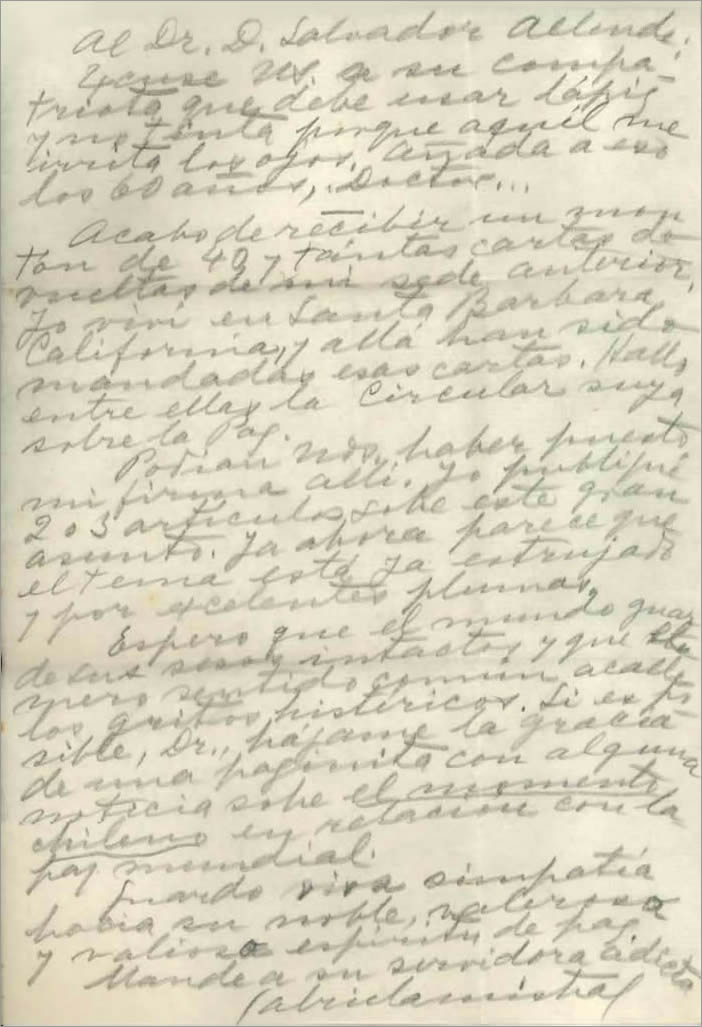 Al Dr. D. Salvador Allende.
Excuse Us. a su compa-
triota que debe usar lápiz
y no tinta porque aquel me
irrita los ojos. Añada a eso
los 60 años, Doctor...
Acabo de recibir un mon
tón de 40 y tantas cartas de
vueltas de mi sede anterior.
Yo viví en Santa Barbara
California, y allá han sido
mandadas esas cartas. Hallo
entre ellas la Circular suya
sobre la Paz.
Podían Uds. haber puesto
mi firma allí. Yo publiqué
2 o 3 artículos sobe este gran
asunto. Ya ahora parece que
el tema está ya estrujado
y por excelentes plumas.
Espero que el mundo guar
de sus sesos intactos y que el
mero sentido común acalle
los gritos histéricos. Si es po
sible, Dr., hájame la gracia
de una paginita con alguna
noticia sobe el momento
chileno en relación con la
paz mundial.
Guardo viva simpatía
hacia su noble, valeroso
y valioso espíritu de paz
Mande a su servidora adicta
Gabriela Mistral